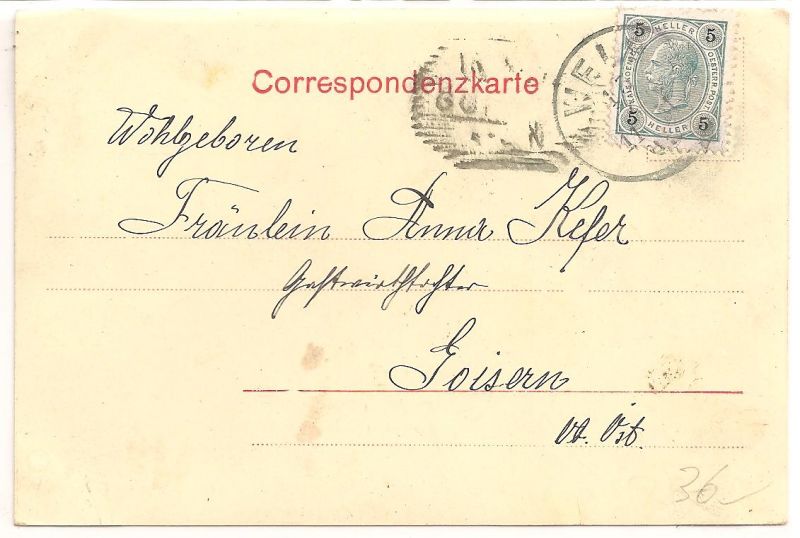 Correspondenzkarte
5 HELLER 5
OESTERR. POST
5 HELLER 5
Wohlgeboren
Fräulein Anna Kefer
Gastwirthstochter
Goisern
36